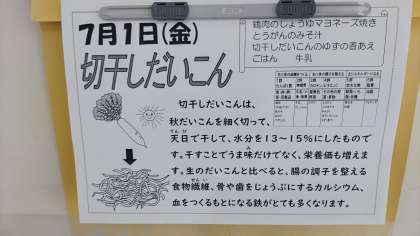 7月1日(金)
切干しだいこん
鶏肉のしょうゆマヨネーズ焼き
とうがんのみそ汁
切干しだいこんのゆずの香あえ
ごはん 牛乳
切干しだいこんは、
秋だいこんを細く切って、
天日で干して、水分を13～15%にしたもので
す。干すことでうま味だけでなく、栄養価も増えま
す。生のだいこんと比べると、腸の調子を整える
食物繊維、骨や歯をじょうぶにするカルシウム、
血をつくるもとになる鉄がとても多くなります。